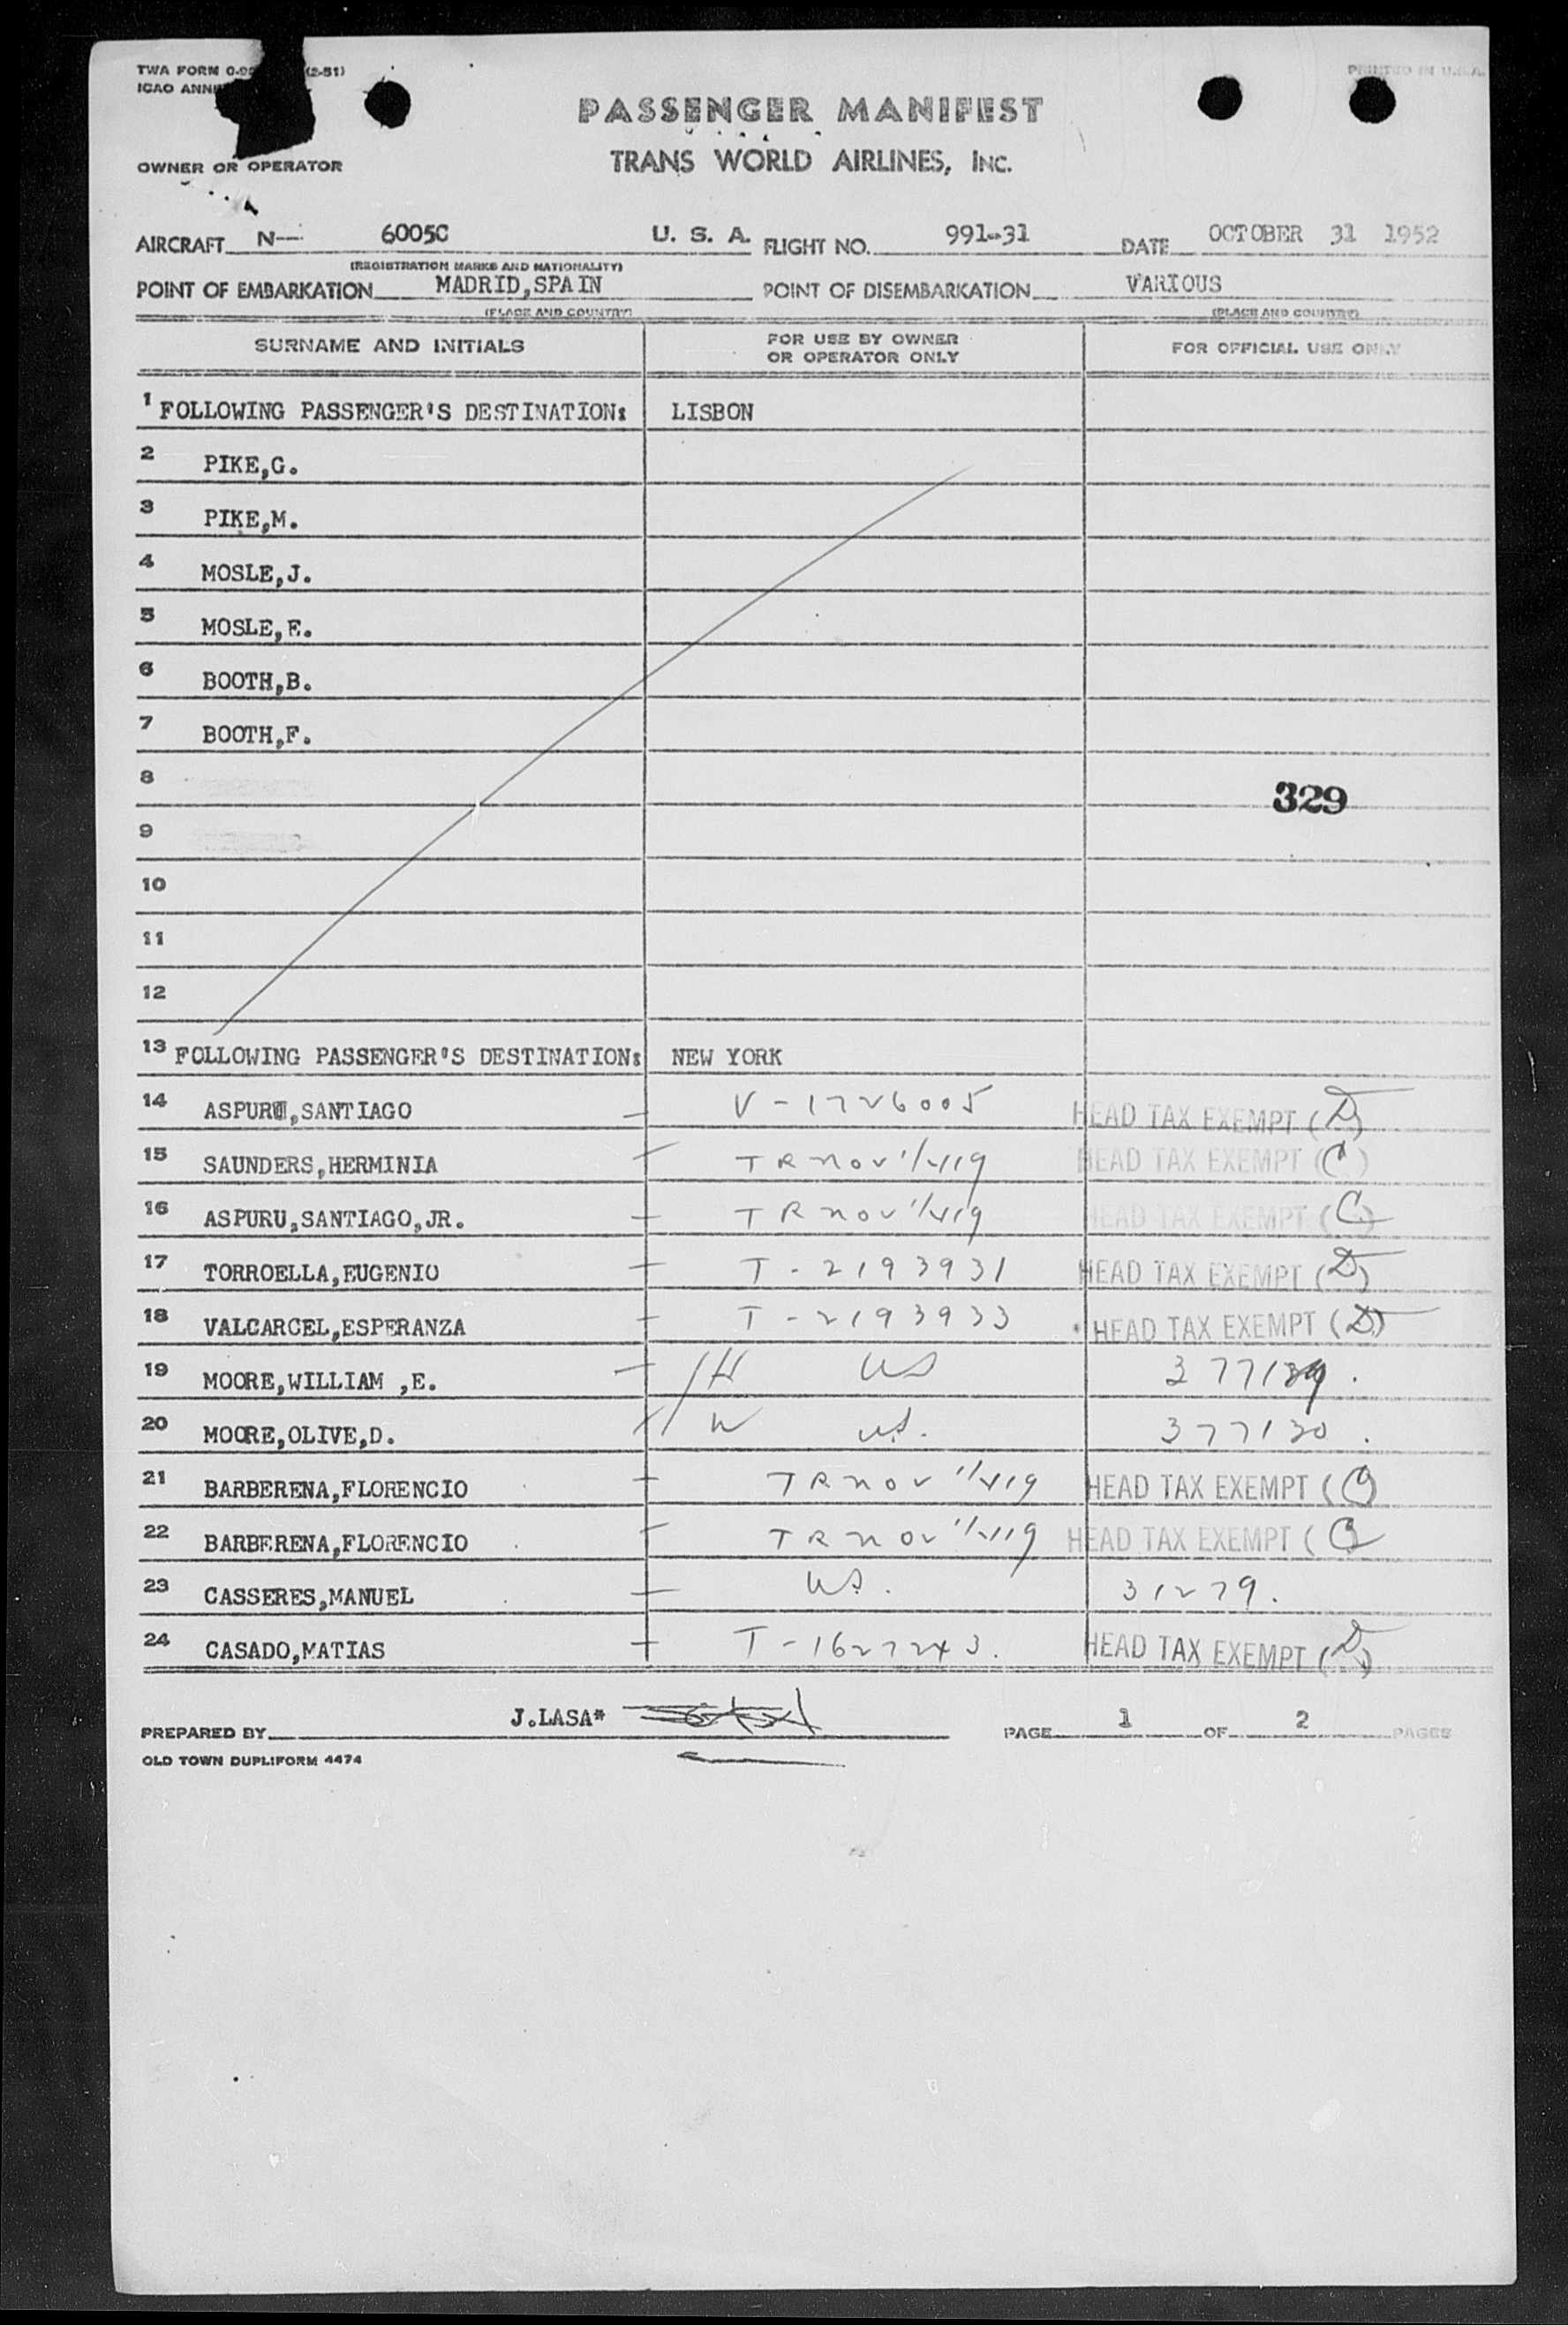 TWA FORM (2-51)
PRINTED IN U.S.A.
ICAO
PASSENGER MANIFEST
TRANS WORLD AIRLINES, INC.
OWNER OR OPERATOR
AIRCRAFT N— 6005C U. S. A. FLIGHT NO. 991-31 DATE OCTOBER 31 1952
(REGISTRATION MARKS AND NATIONALITY)
POINT OF EMBARKATION MADRID,SPAIN POINT OF DISEMBARKATION VARIOUS
(PLACE AND COUNTRY) (PLACE AND COUNTRY)
SURNAME AND INITIALS FOR USE BY OWNER OR OPERATOR ONLY FOR OFFICIAL USE ONLY
1 FOLLOWING PASSENGER'S DESTINATION: LISBON
2 PIKE,G.
3 PIKE,M.
4 MOSLE,J.
5 MOSLE,E.
6 BOOTH,B.
7 BOOTH,F.
8
329
9
10
11
12
13 FOLLOWING PASSENGER'S DESTINATION: NEW YORK
14 ASPURU,SANTIAGO — V-1726005 HEAD TAX EXEMPT (D)
15 SAUNDERS,HERMINIA — TR nov HEAD TAX EXEMPT (C)
16 ASPURU,SANTIAGO,JR. — TR nov HEAD TAX EXEMPT (C)
17 TORROELLA,EUGENIO — T-2193931 HEAD TAX EXEMPT (D)
18 VALCARCEL,ESPERANZA — T-2193933 HEAD TAX EXEMPT (D)
19 MOORE,WILLIAM ,E. — H US
20 MOORE,OLIVE,D. W US. 377130.
21 BARBERENA,FLORENCIO — TR nov HEAD TAX EXEMPT (C)
22 BARBERENA,FLORENCIO — TR nov HEAD TAX EXEMPT (C)
23 CASSERES,MANUEL — US. 31279.
24 CASADO,MATIAS — T-1627243. HEAD TAX EXEMPT (D)
PREPARED BY J.LASA* PAGE 1 OF 2 PAGES
OLD TOWN DUPLIFORM 4474